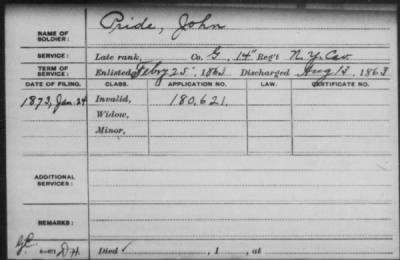 NAME OF SOLDIER: Pride, John
SERVICE: Late rank, Co. G, 14" Reg't N.Y. Cav
TERM OF SERVICE: Enlisted Feby 25", 1863 Discharged Aug 13, 1863
DATE OF FILING. CLASS. APPLICATION NO. LAW. CERTIFICATE NO.
1873, Jan. 24 Invalid, 180,621.
Widow,
Minor,
ADDITIONAL SERVICES:
REMARKS:
Died , 1 , at